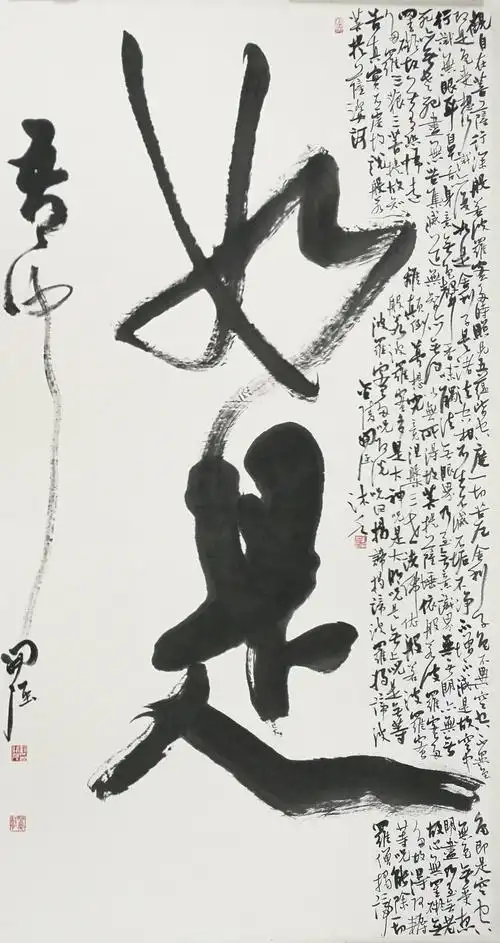 觀自在菩薩行深般若波羅蜜多時照見五蘊皆空度一切苦厄舍利子色不異空空不異色色即是空空
即是色受想行識亦復如是舍利子是諸法空相不生不滅不垢不净不增不減是故空中無色無受想
行識無眼耳鼻舌身意無色聲香味觸法無眼界乃至無意識界無無明亦無無明盡乃至無老
死亦無老死盡無苦集滅道無智亦無得以無所得故菩提薩埵依般若波羅蜜多故心無罣礙無
罣礙故無有恐怖遠離顛倒夢想究竟涅槃三世諸佛依般若波羅蜜多故得阿耨
多羅三藐三菩提故知般若波羅蜜多是大神咒是大明咒是無上咒是無等等咒能除一切
苦真實不虛故說般若波羅蜜多咒即說咒曰揭諦揭諦波羅揭諦波羅僧揭諦
菩提薩婆訶
沐手
如是
吾師